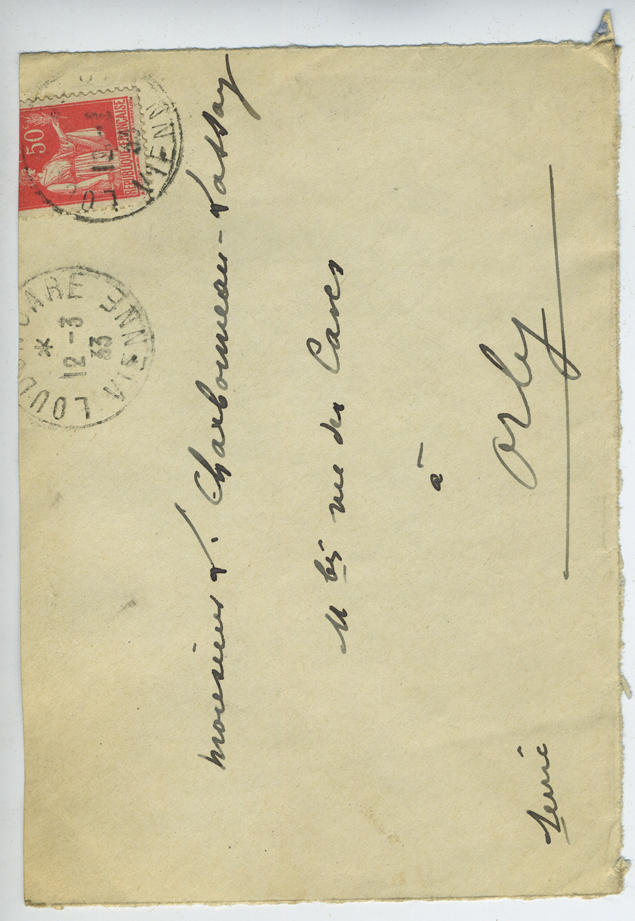 50
REPUBLIQUE FRANÇAISE
LOUDUN GARE VIENNE
12 - 3
33
Monsieur L. Charbonneau-Lassay
11 bis rue des Caves
à
Orly
Seine